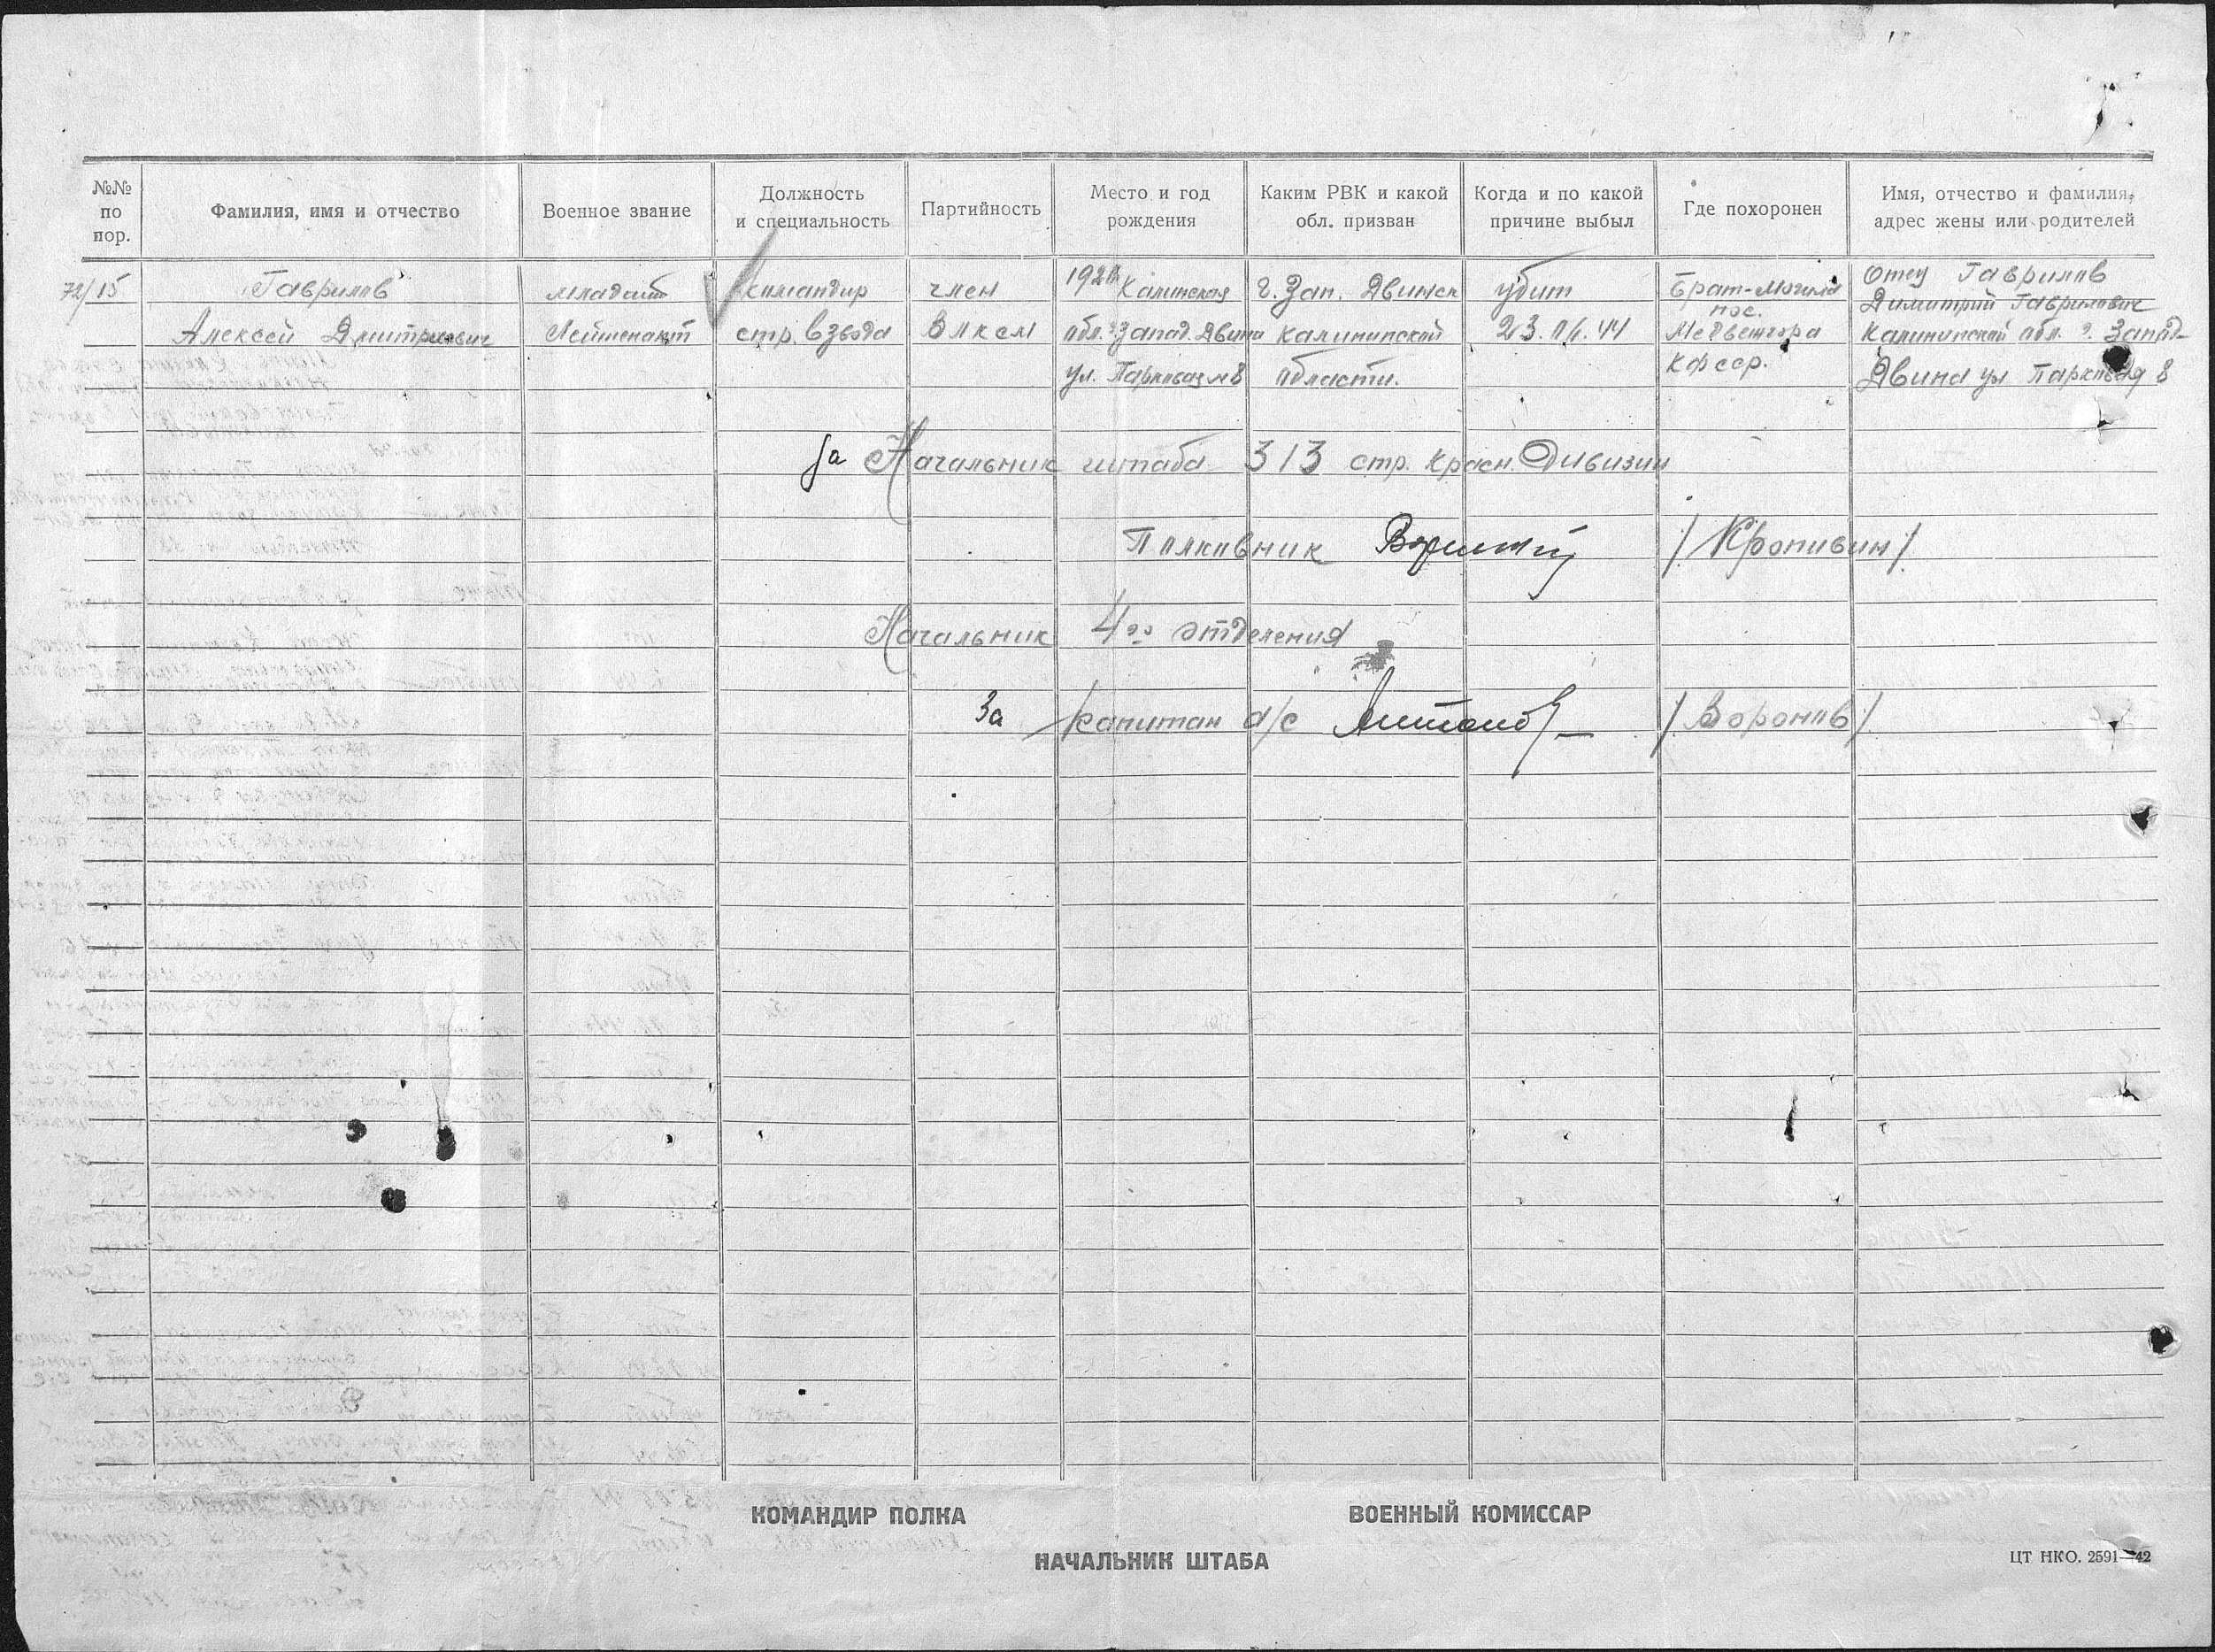 №№ по пор.
Фамилия, имя и отчество
Военное звание
Должность и специальность
Партийность
Место и год рождения
Каким РВК и какой обл. призван
Когда и по какой причине выбыл
Где похоронен
Имя, отчество и фамилия, адрес жены или родителей
72/15
Гаврилов
Алексей Дмитриевич
младший
Лейтенант
командир
стр. взвода
член
ВЛКСМ
Калинская
обл. г. Запад. Двина
ул. Парковая № 8
г. Зап. Двинск
Калининской
области.
убит
23. 06. 44
Брат-могила
пос.
Медвежгора
КФССР.
Отец Гаврилов
Димитрий Гаврилович
Калининской обл. г. Запад-
Двина ул Парковая 8
За Начальник штаба 313 стр. Красн. Дивизии
Полковник /Кропивин/
Начальник 4го отделения
За капитан а/с /Воронов/
КОМАНДИР ПОЛКА
ВОЕННЫЙ КОМИССАР
НАЧАЛЬНИК ШТАБА
ЦТ НКО. 2591—42